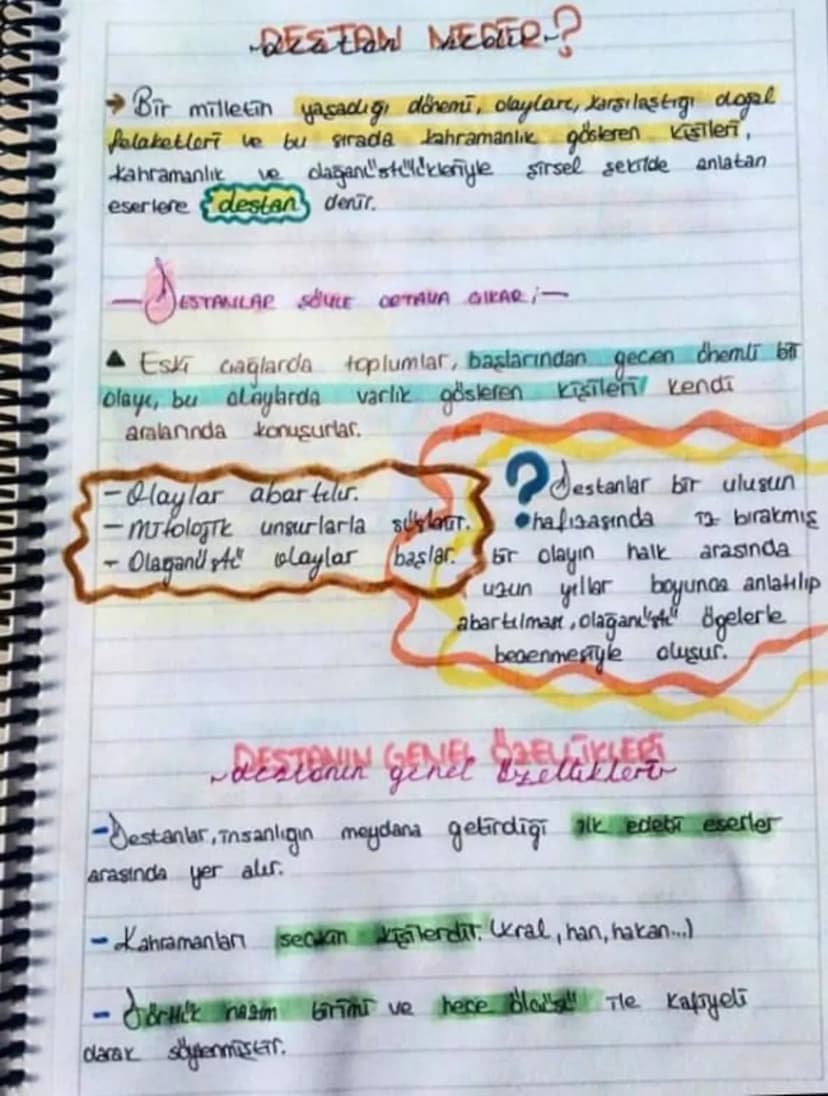 DESTAN NEDİR?
→ Bir milletin yaşadığı dönemi, olayları, karşılaştığı doğal
felaketleri ve bu sırada kahramanlık gösteren kişileri,
kahramanlık ve olağanüstülükleriyle şiirsel şekilde anlatan
eserlere destan denir.
- DESTANLAR ŞÖYLE ORTAYA ÇIKAR; -
▲ Eski çağlarda toplumlar, başlarından geçen önemli bir
olayı, bu olaylarda varlık gösteren kişileri kendi
aralarında konuşurlar.
- Olaylar abartılır.
- mitolojik unsurlarla süslenir.
- Olağanüstü olaylar başlar.
? Destanlar bir ulusun
hafızasında iz bırakmış
bir olayın halk arasında
uzun yıllar boyunca anlatılıp
abartılması, olağanüstü ögelerle
bezenmesiyle oluşur.
DESTANIN GENEL ÖZELLİKLERİ
destanın genel özellikleri
- Destanlar, insanlığın meydana getirdiği ilk edebi eserler
arasında yer alır.
- Kahramanları seçkin kişilerdir. (Kral, han, hakan...)
- Dörtlük nazım birimi ve hece ölçüsü ile kafiyeli
olarak söylenmiştir.